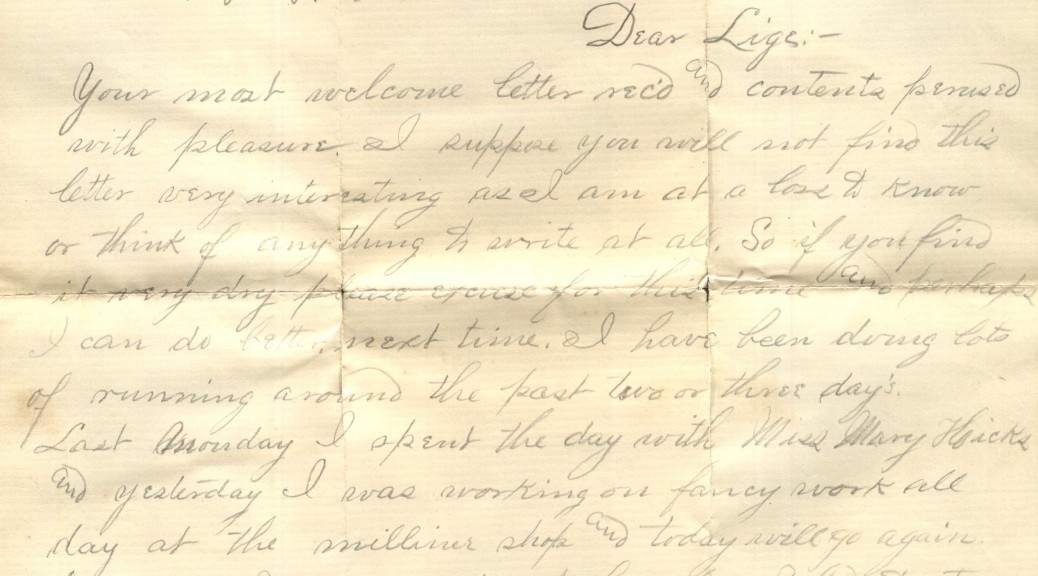 Dear Lige:-
Your most welcome letter rec'd and contents perused
with pleasure. I suppose you will not find this
letter very interesting as I am at a loss to know
or think of anything to write at all. So if you find
it very dry please excuse for this time and perhaps
I can do better next time. I have been doing lots
of running around the past two or three day's.
Last Monday I spent the day with Miss Mary Hicks
and yesterday I was working on fancy work all
day at the milliner shop and today will go again.